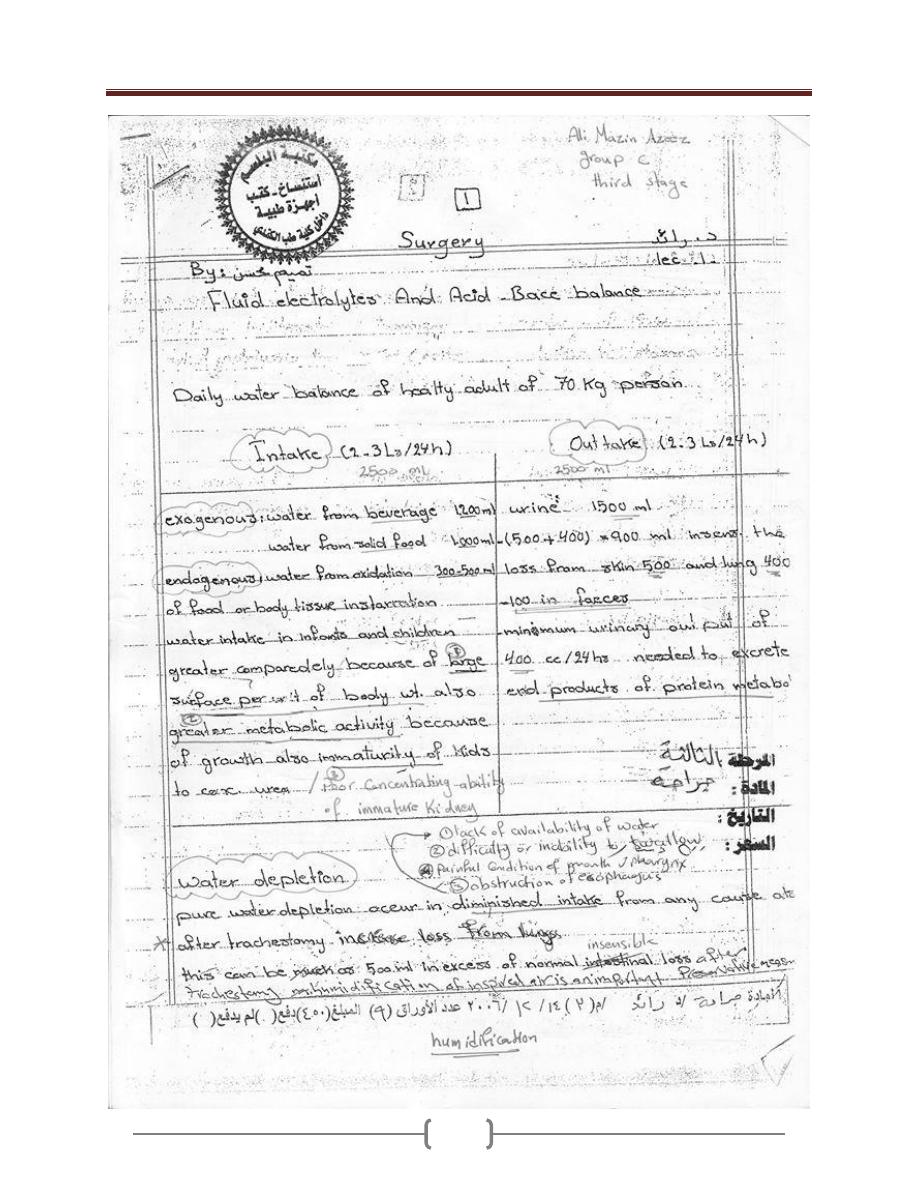 Ali Mazin Azeez
group c
third stage
مكتبة البلسم
أستنساخ - كتب
أجهزة طبية
داخل كلية طب الكندي
1
Surgery
د. رائد
By: تميم محسن
lec. 1
Fluid electrolytes And Acid - Bace balance
Daily water balance of healty adult of 70 Kg person
Intake (2-3 Ls/24h)
2500 mL
exogenous: water from beverage 1200ml
water from solid food 1000ml
endogenous: water from oxidation 300-500ml
of food or body tissue in starration
water intake in infants and children
greater comparedely because of large
surface per unit of body wt. also
greater metabolic activity because
of growth also immaturity of Kids
to urea / Poor Concentrating ability
of immature Kidney
Out take (2-3 Ls/24h)
2500 ml
urine 1500 ml
-(500 + 400) = 900 ml insens. the
loss from skin 500 and lung 400
-100 in faeces
-minimum urinary out put of
400 cc/24hs needed to excrete
end products of protein metabo
المرحلة الثالثة
المادة: جراحه
التاريخ:
السعر:
① lack of availability of water
② difficulty or inability to swallow
④ Painful Condition of mouth / pharynx
③ obstruction of esophagus
water depletion
pure water depletion occur in diminished intake from any cause
* after trachestomy increase loss from lungs
insensible
this can be much as 500 ml in excess of normal intestinal loss after
trachestomy humidification of inspired air is an important
المادة جراحة د رائد م (2) 14 / 10 / 2006 عدد الأوراق (9) المبلغ (450) دفع( ) لم يدفع( )
humidification